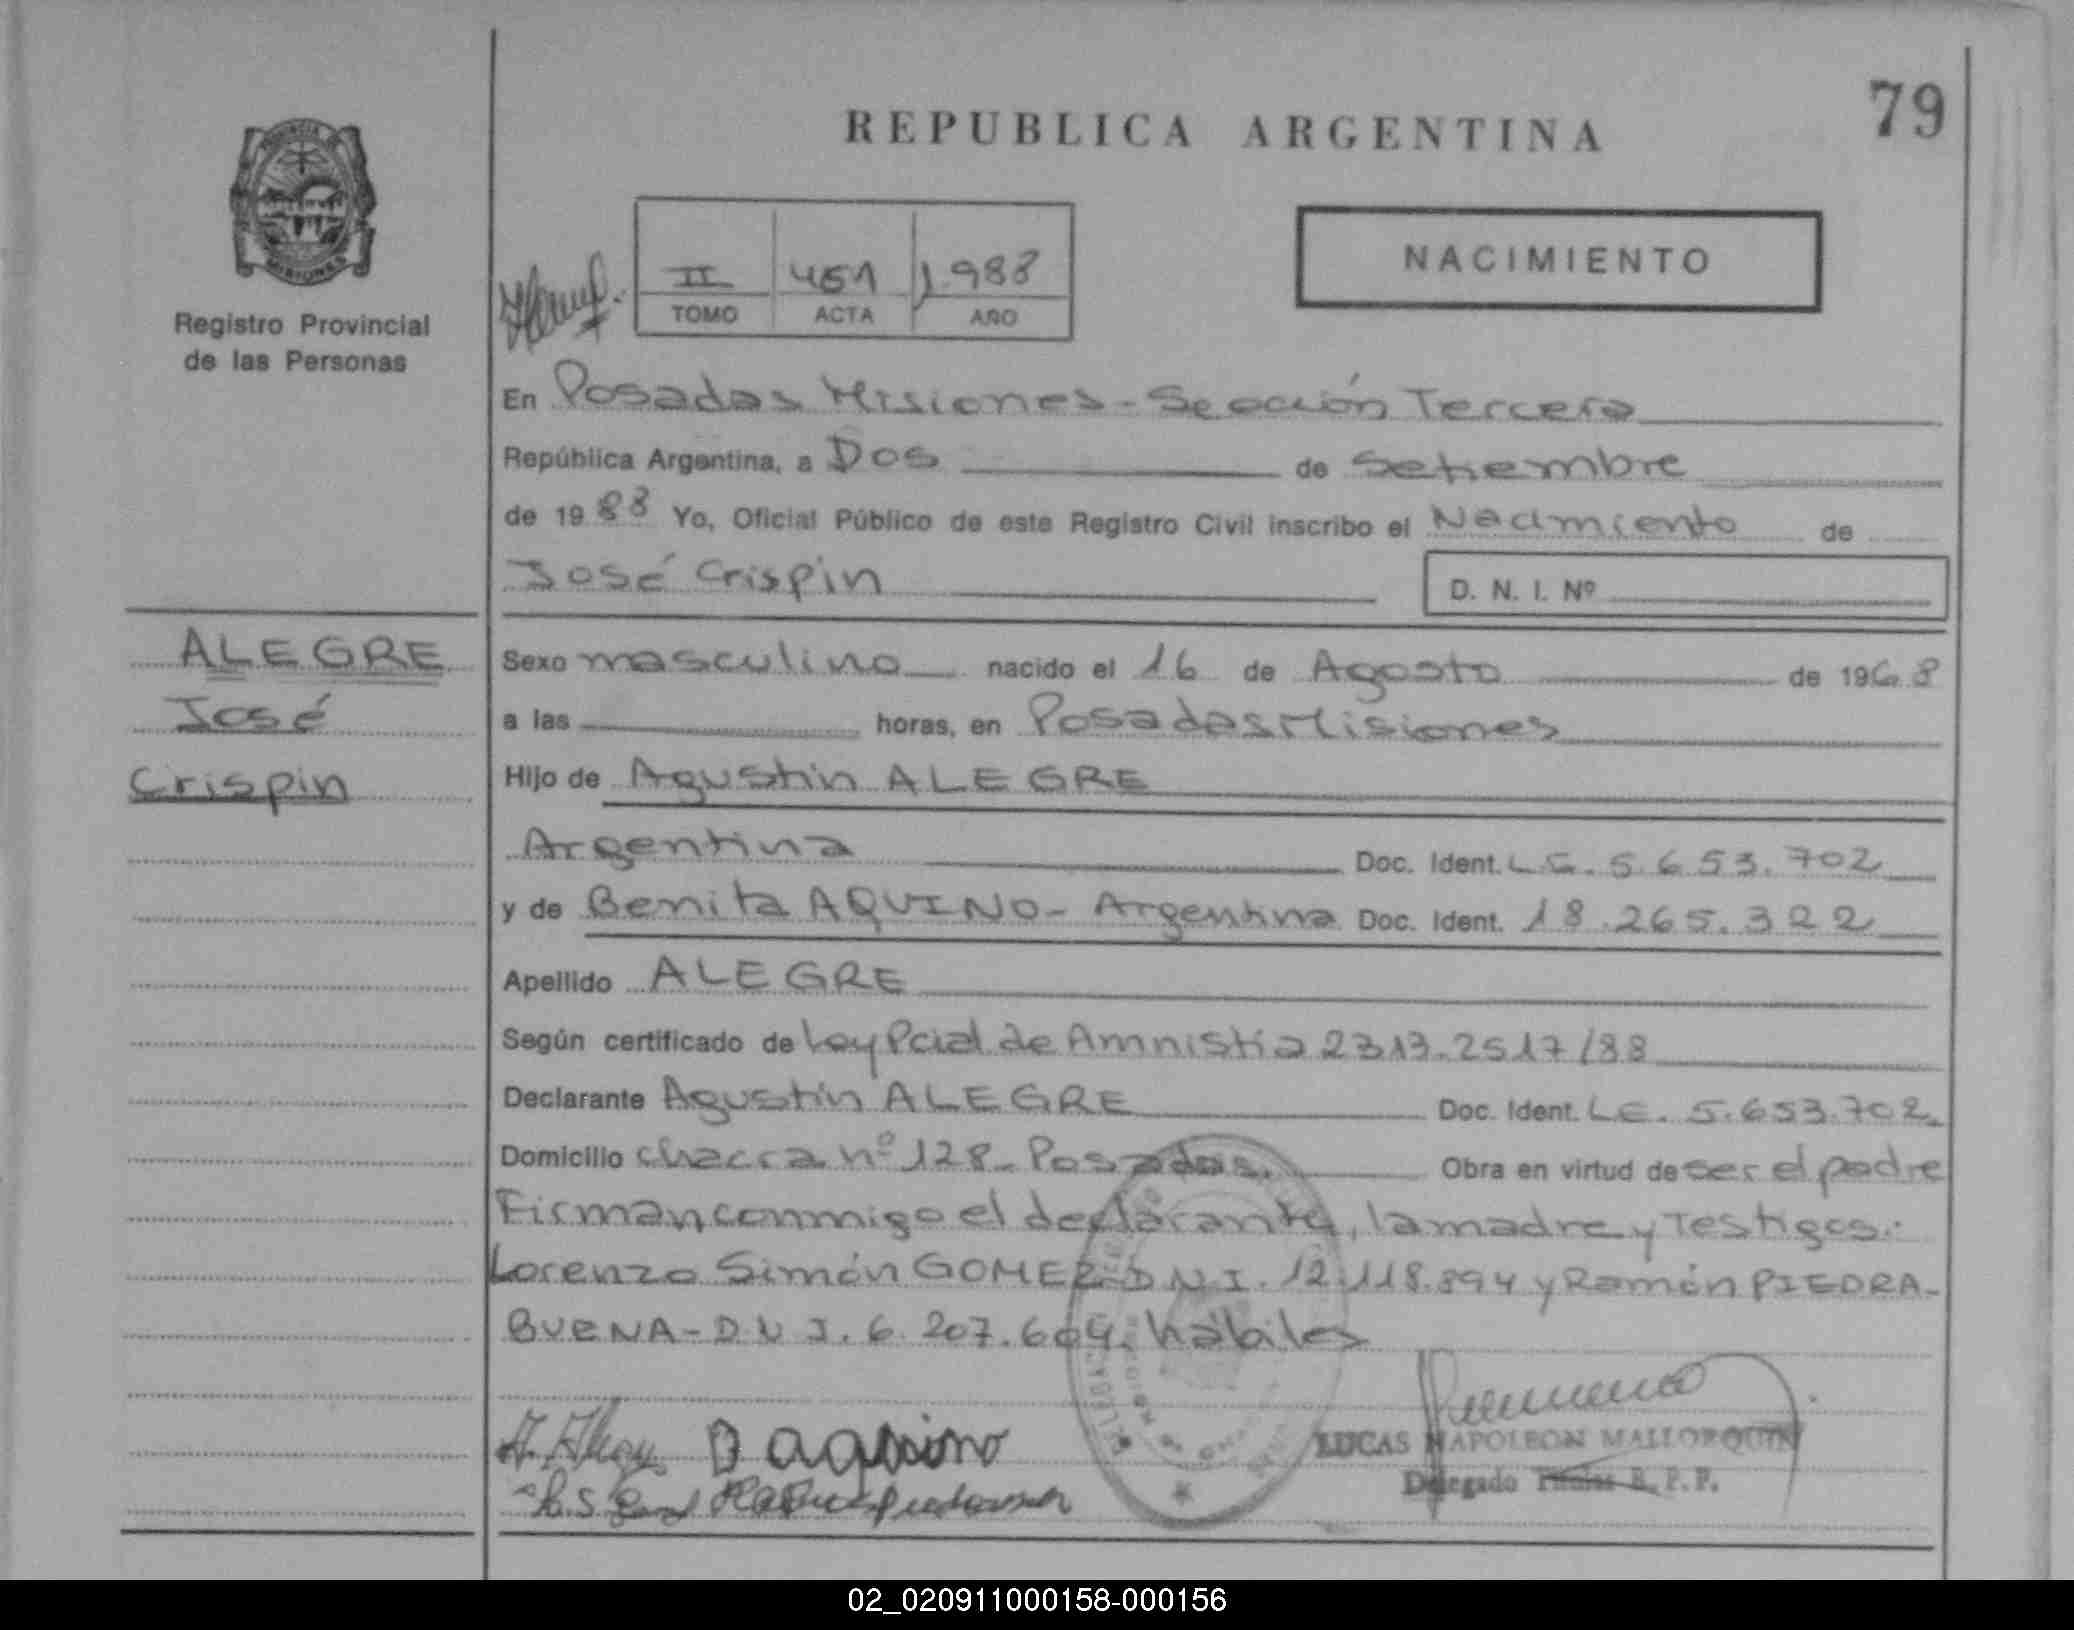 REPUBLICA ARGENTINA
79
PROVINCIA
MISIONES
Registro Provincial
de las Personas
II 451 1.988
TOMO ACTA AÑO
NACIMIENTO
En Posadas Misiones - Sección Tercera
República Argentina, a Dos de Setiembre
de 1988 Yo, Oficial Público de este Registro Civil inscribo el Nacimiento de
José Crispin
D. N. I. Nº
ALEGRE
José
Crispin
Sexo masculino nacido el 16 de Agosto de 1968
a las horas, en Posadas Misiones
Hijo de Agustin ALEGRE
Argentina Doc. Ident. L.E. 5.653.702
y de Benita AQUINO - Argentina Doc. Ident. 18.265.322
Apellido ALEGRE
Según certificado de Ley Pcial de Amnistía 2313.2517/88
Declarante Agustín ALEGRE Doc. Ident. LE. 5.653.702
Domicilio chacra nº 128 - Posadas. Obra en virtud de ser el padre
Firman conmigo el declarante, la madre y Testigos:
Lorenzo Simón GOMEZ - D N I. 12.118.894 y Ramón PIEDRA-
BUENA - D N I. 6.207.604. hábiles
B aquino
LUCAS NAPOLEON MALLORQUIN
Delegado Titular R. P. P.
02_020911000158-000156